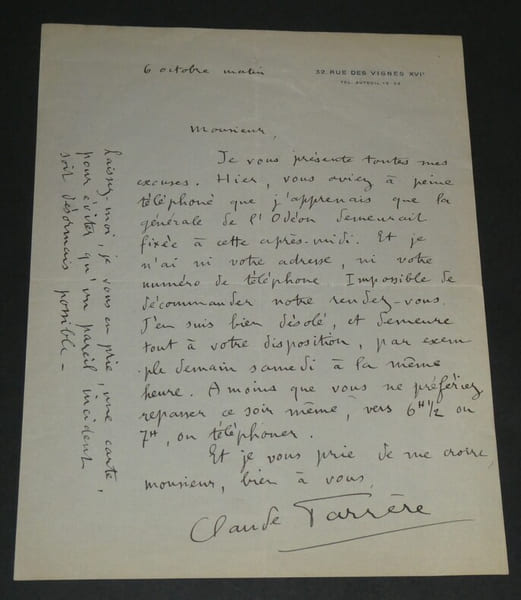 6 octobre matin
32 RUE DES VIGNES XVIe
TEL. AUTEUIL
Monsieur,
Je vous présente toutes mes
excuses. Hier, vous aviez à peine
téléphoné que j'apprenais que la
générale de l'Odéon demeurait
fixée à cette après-midi. Et je
n'ai ni votre adresse, ni votre
numéro de téléphone. Impossible de
décommander notre rendez-vous.
J'en suis bien désolé, et demeure
tout à votre disposition, par exem
-ple demain samedi à la même
heure. A moins que vous ne préfériez
repasser ce soir même, vers 6H 1/2 ou
7H, ou téléphoner.
Et je vous prie de me croire,
monsieur, bien à vous,
Claude Farrère
Laissez-moi, je vous en prie, une carte,
pour éviter qu'un pareil incident
soit désormais possible -